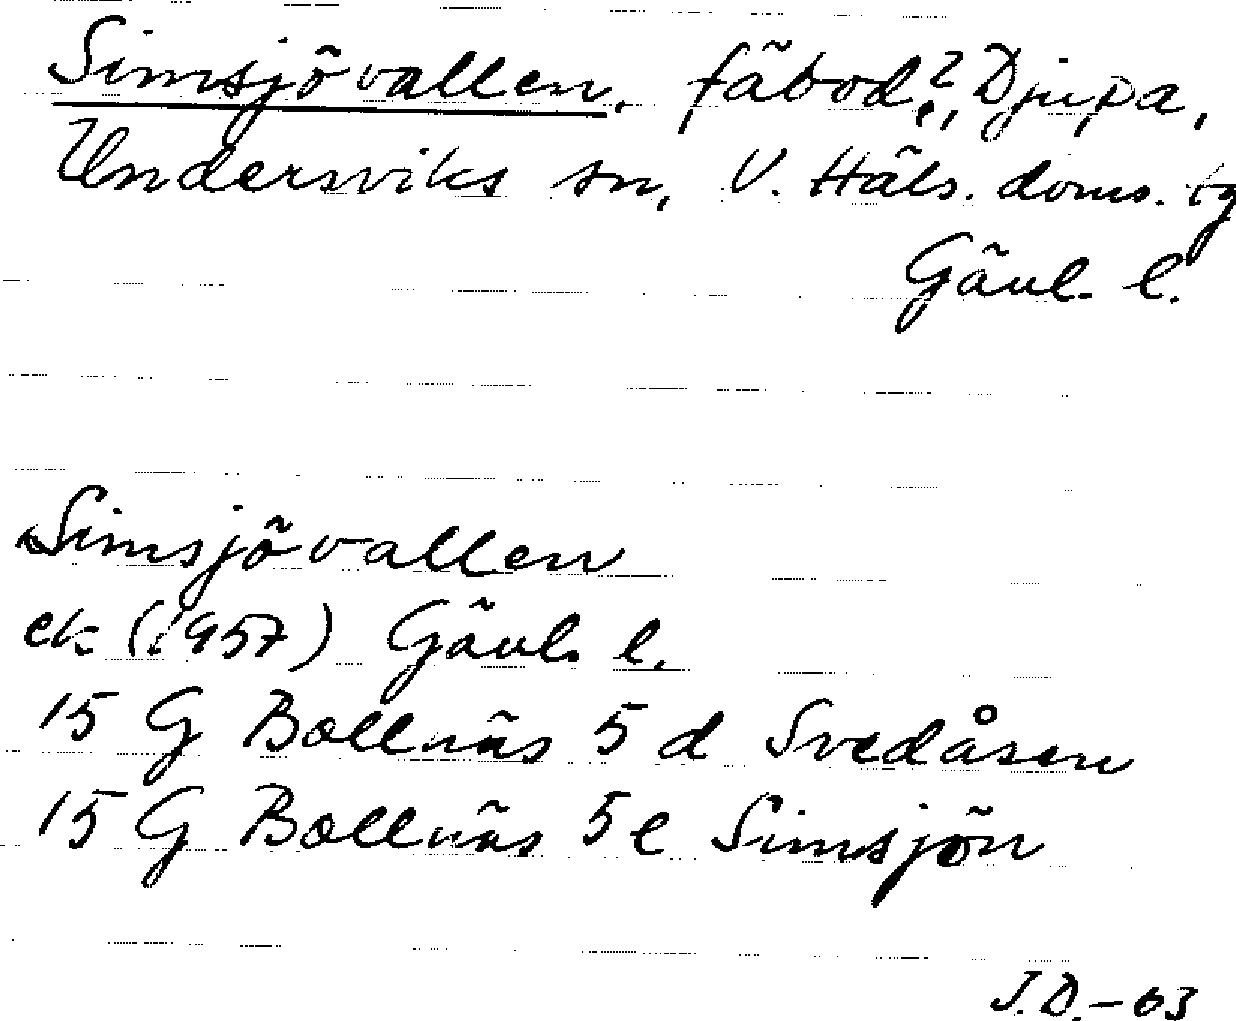 Simsjövallen, fäbod?, Djupa,
Undersviks sn, V. Häls. doms. tg
Gävl. l.
Simsjövallen
ek (1957) Gävl. l.
15 G Bollnäs 5 d Svedåsen
15 G Bollnäs 5 e Simsjön
J.D.-63